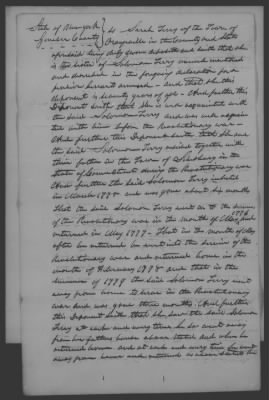 State of New York
Greene County } ss Sarah Terry of the Town of
in the County and State
aforesaid being duly sworn deposeth and saith that she
is the sister of Solomon Terry named mentioned
and described in the foregoing declaration for a
pension hereunto annexed - and that she this
deponent is seventy years of age - And further this
Deponent saith that she was acquainted with
the said Solomon Terry and was well acquainted
with him before the Revolutionary war -
And further this Deponent saith that she and
the said Solomon Terry resided together with
their father in the Town of in the
State of Connecticut during the Revolutionary war
And further the said Solomon Terry enlisted
in March 1776 and was gone about six months
That the said Solomon Terry went in to the service
of the Revolutionary war in the month of May 1776 and
returned in May 1777 - That in the month of May
after he returned he went into the service of the
Revolutionary war and returned home in the
month of February 1778 and that in the
summer of 1779 the said Solomon Terry went
away from home to serve in the Revolutionary
war and was gone three months, And further
this Deponent saith that she saw the said Solomon
Terry at each and every time he so went away
from his fathers house above stated and when he
returned home and at each and every time he went
away from home and returned as above stated he